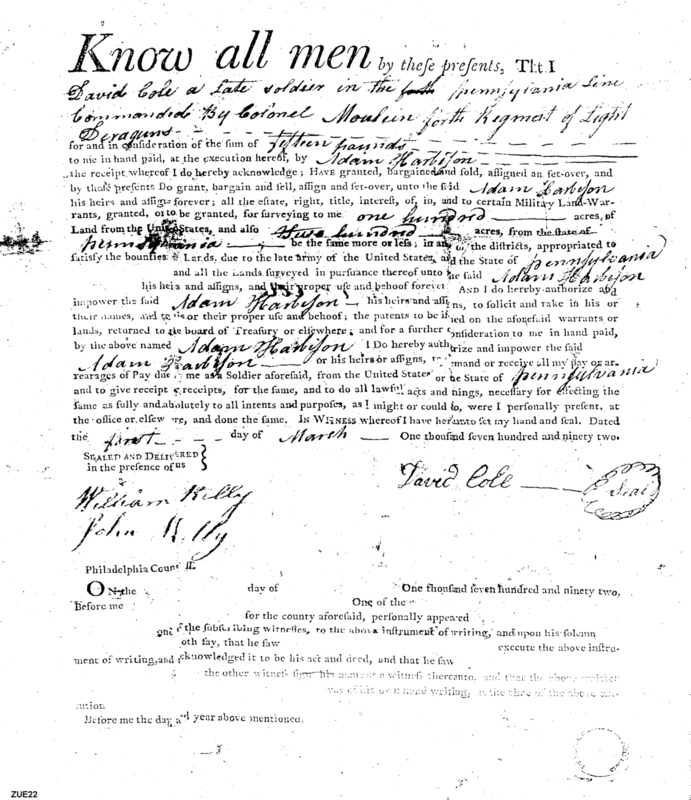 Know all men by these presents, Tht I
David Cole a Late soldier in the forth pennsylvania Line
Commanded By Colonel Moulein forth Regment of Light
Deraguns
for and in consideration of the sum of fifteen pounds
to me in hand paid, at the execution hereof, by Adam Harbison
the receipt whereof I do hereby acknowledge; HAVE granted, bargained and sold, assigned an set-over, and
by these presents Do grant, bargain and sell, assign and set-over, unto the said Adam Harbison
his heirs and assigns forever; all the estate, right, title, interest, of, in, and to certain Military Land-War-
rants, granted, or to be granted, for surveying to me one hundred acres, of
Land from the United States, and also Two hundred acres, from the state of
pennsylvania be the same more or less; in an of the districts, appropriated to
satisfy the bounties of Lands, due to the late army of the United States, and the State of pennsylvania
and all the Lands surveyed in pursuance thereof unto he said Adam Harbison
his heirs and assigns, and their proper use and behoof forever AND I do hereby authorize and
impower the said Adam Harbison his heirs and assigns, to solicit and take in his or
their names, and to his or their proper use and behoof; the patents to be issued on the aforesaid warrants or
lands, returned to the board of Treasury or elsewhere; and for a further consideration to me in hand paid,
by the above named Adam Harbison I Do hereby authorize and impower the said
Adam Harbison or his heirs or assigns, to demand or receive all my pay or ar-
rearages of Pay due me as a Soldier aforesaid, from the United States or the State of pennsylvania
and to give receipt receipts, for the same, and to do all lawful acts and things, necessary for effecting the
same as fully and absolutely to all intents and purposes, as I might or could do, were I personally present, at
the office or elsewhere, and done the same. IN WITNESS whereof I have hereunto set my hand and seal. Dated
the first day of March One thousand seven hundred and ninety two.
SEALED AND DELIVERED
in the presence of us
David Cole Seal
William Killy
John Killy
Philadelphia County ss.
ON the day of One thousand seven hundred and ninety two,
Before me One of the
for the county aforesaid, personally appeared
one of the subscribing witnesses, to the above instrument of writing, and upon his solemn
oth say, that he saw execute the above instru-
ment of writing, and acknowledged it to be his act and deed, and that he saw
the other witness sign his name as a witness thereunto, and that the above
was of his own hand writing, in the time of the above
Before me the day and year above mentioned.
ZUE22